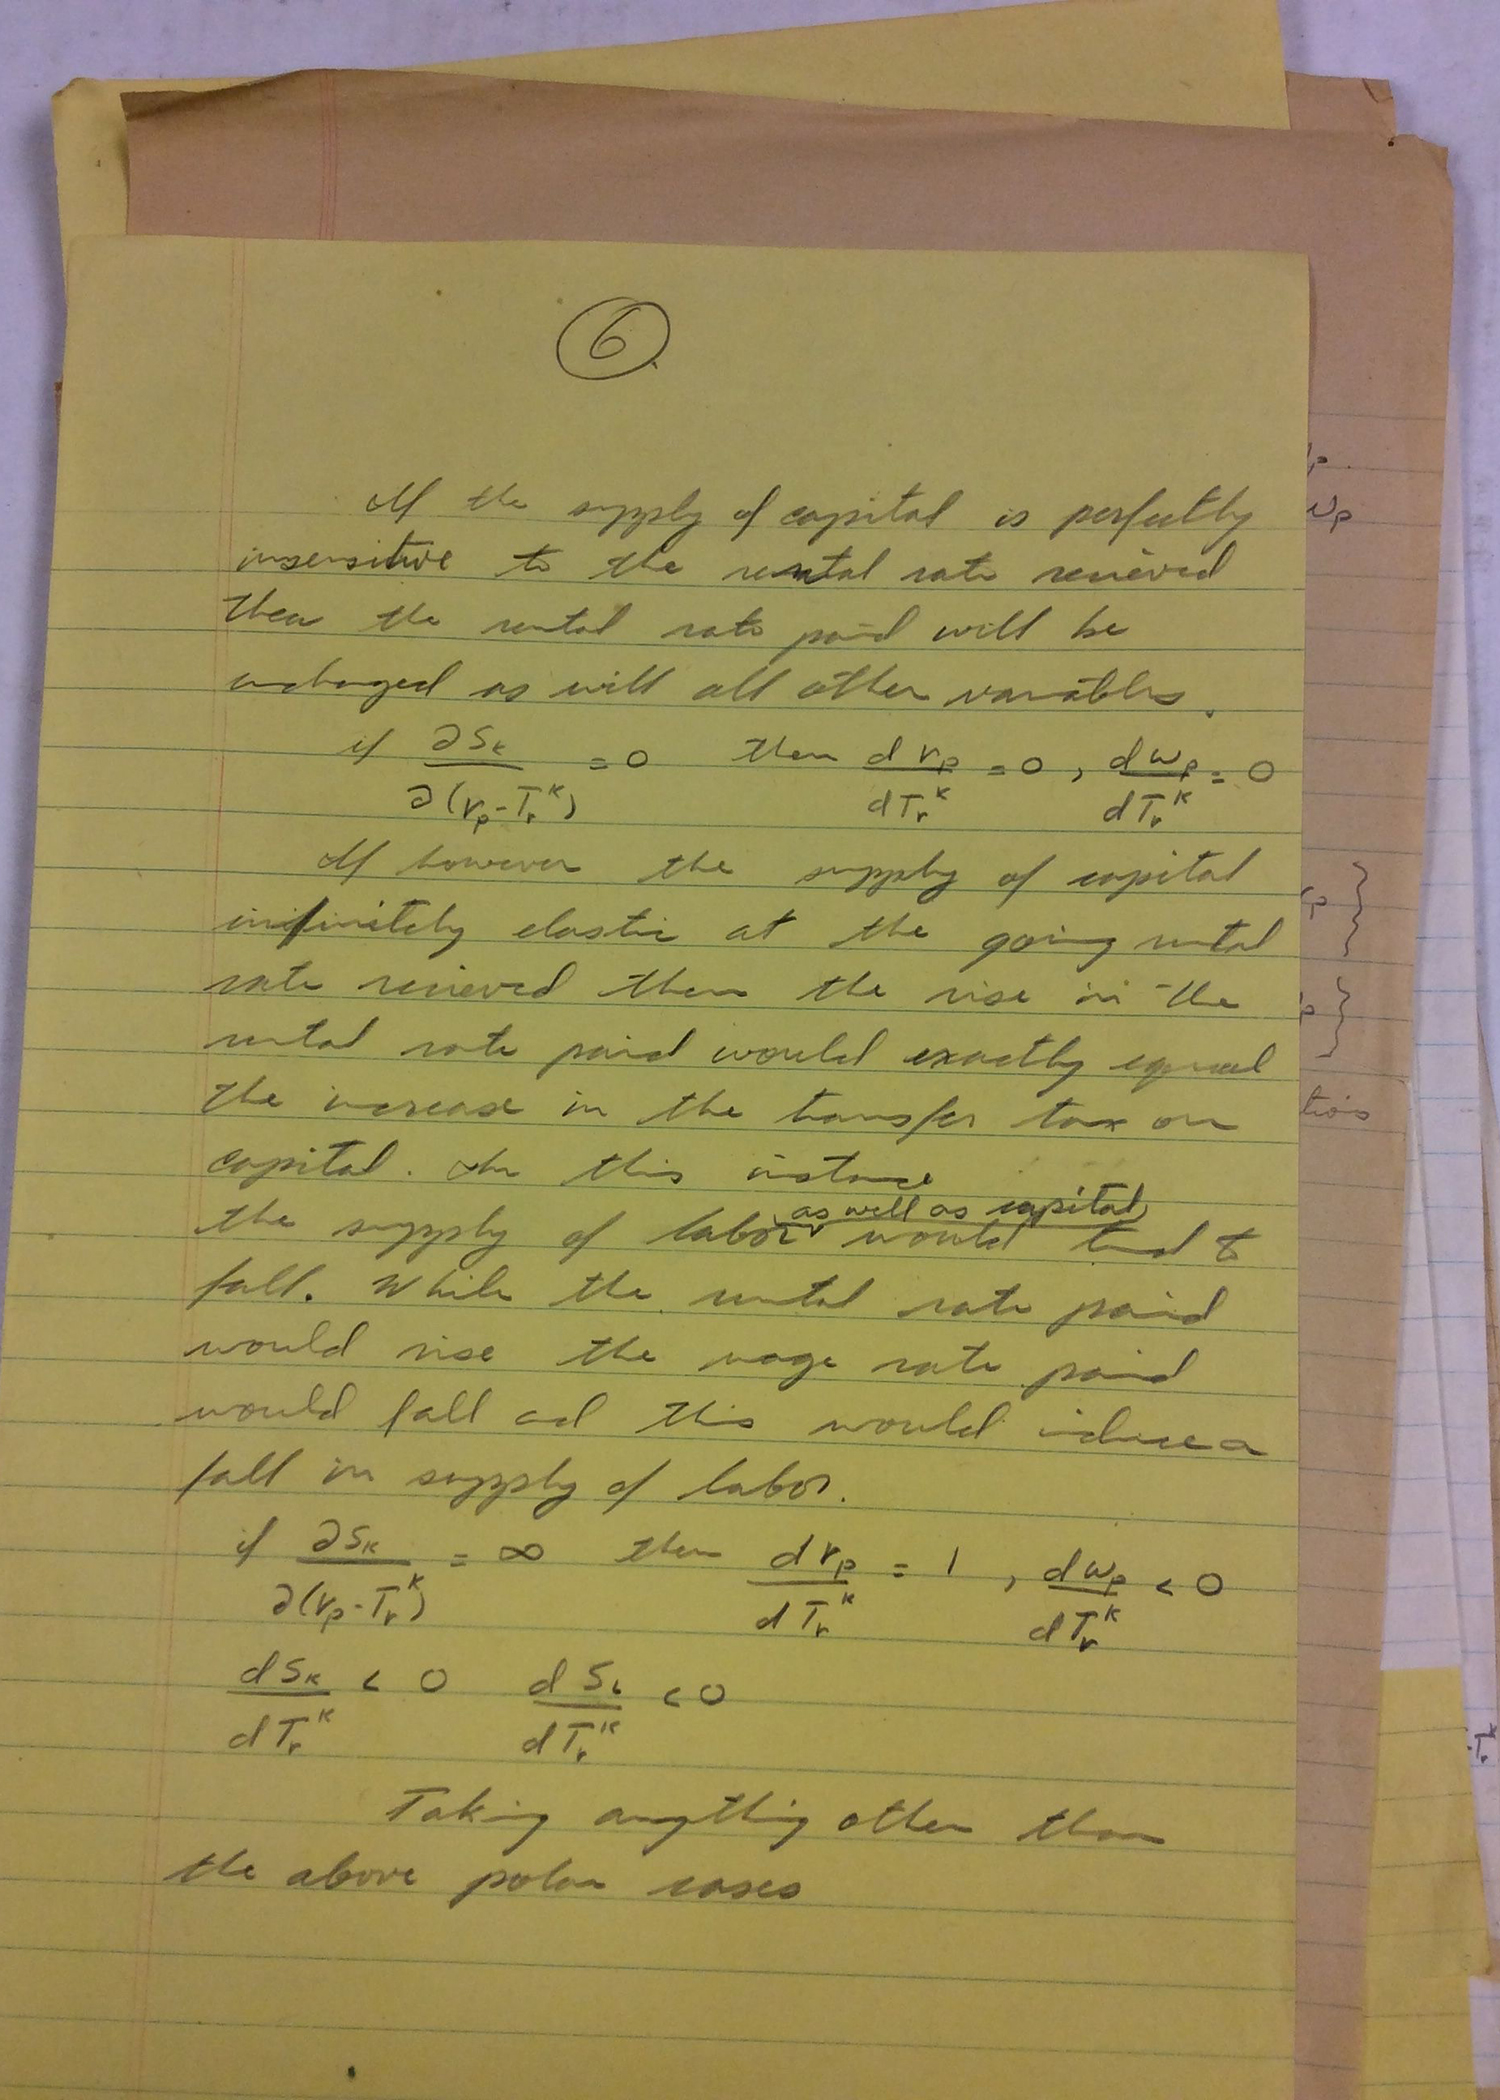 6.
If the supply of capital is perfectly
insensitive to the rental rate recieved
then the rental rate paid will be
unchanged as will all other variables.
if ∂S_K / ∂(r_p - T_r^K) = 0 then dr_p / dT_r^K = 0, dw_p / dT_r^K = 0
If however the supply of capital
infinitely elastic at the going rental
rate recieved then the rise in the
rental rate paid would exactly equal
the increase in the transfer tax on
capital. In this instance
as well as capital
the supply of labor would tend to
fall. While the rental rate paid
would rise the wage rate paid
would fall and this would induce a
fall in supply of labor.
if ∂S_K / ∂(r_p - T_r^K) = ∞ then dr_p / dT_r^K = 1, dw_p / dT_r^K < 0
dS_K / dT_r^K < 0 dS_L / dT_r^K < 0
Taking anything other than
the above polar cases
w_p
}
}
-T_r^K